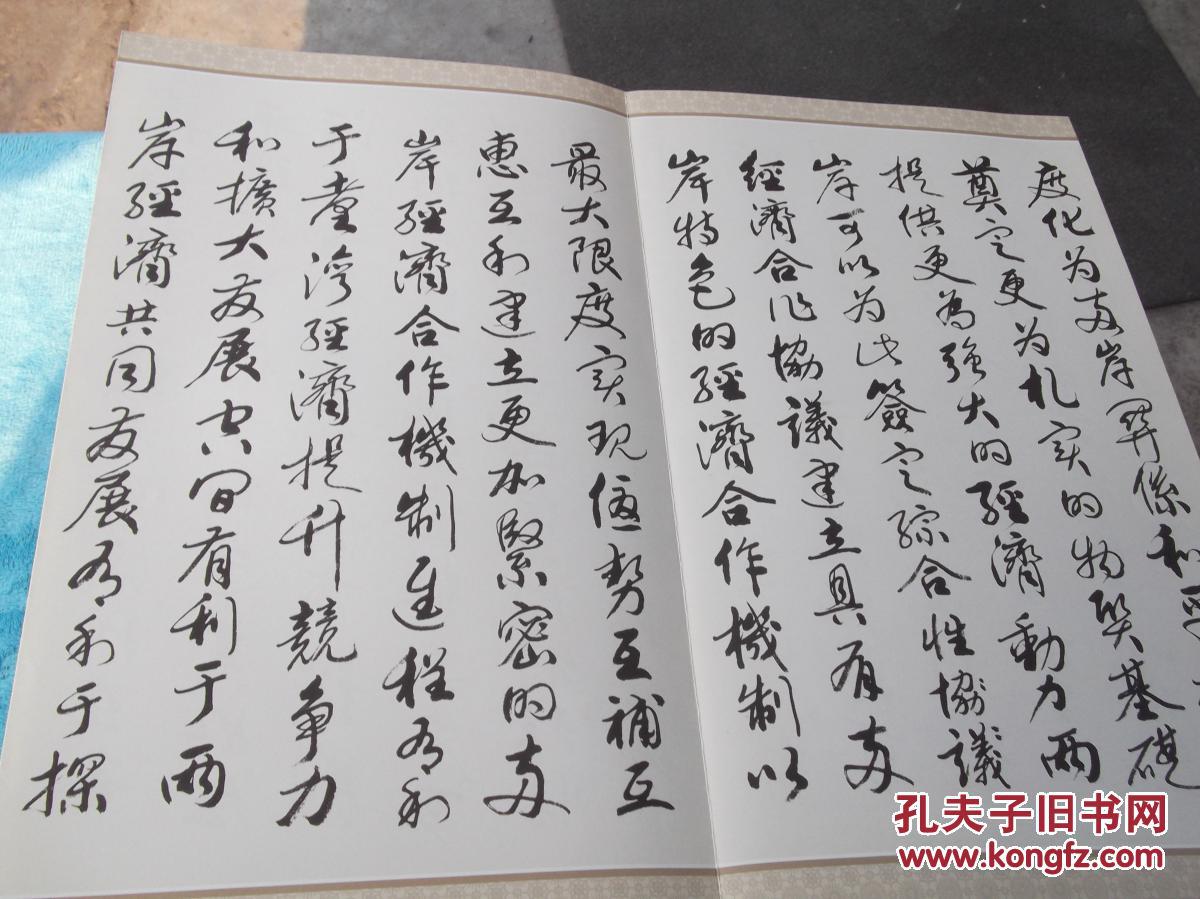 度化为两岸関係和
奠定更为扎实的物質基礎
提供更為强大的經濟動力兩
岸可以为此簽定綜合性協議
經濟合作協議建立具有两
岸特色的經濟合作機制以
最大限度实现優勢互補互
惠互利建立更加緊密的两
岸經濟合作機制進程有利
于臺灣經濟提升競争力
和擴大发展空间有利于兩
岸經濟共同发展有利于探
孔夫子旧书网
www.kongfz.com